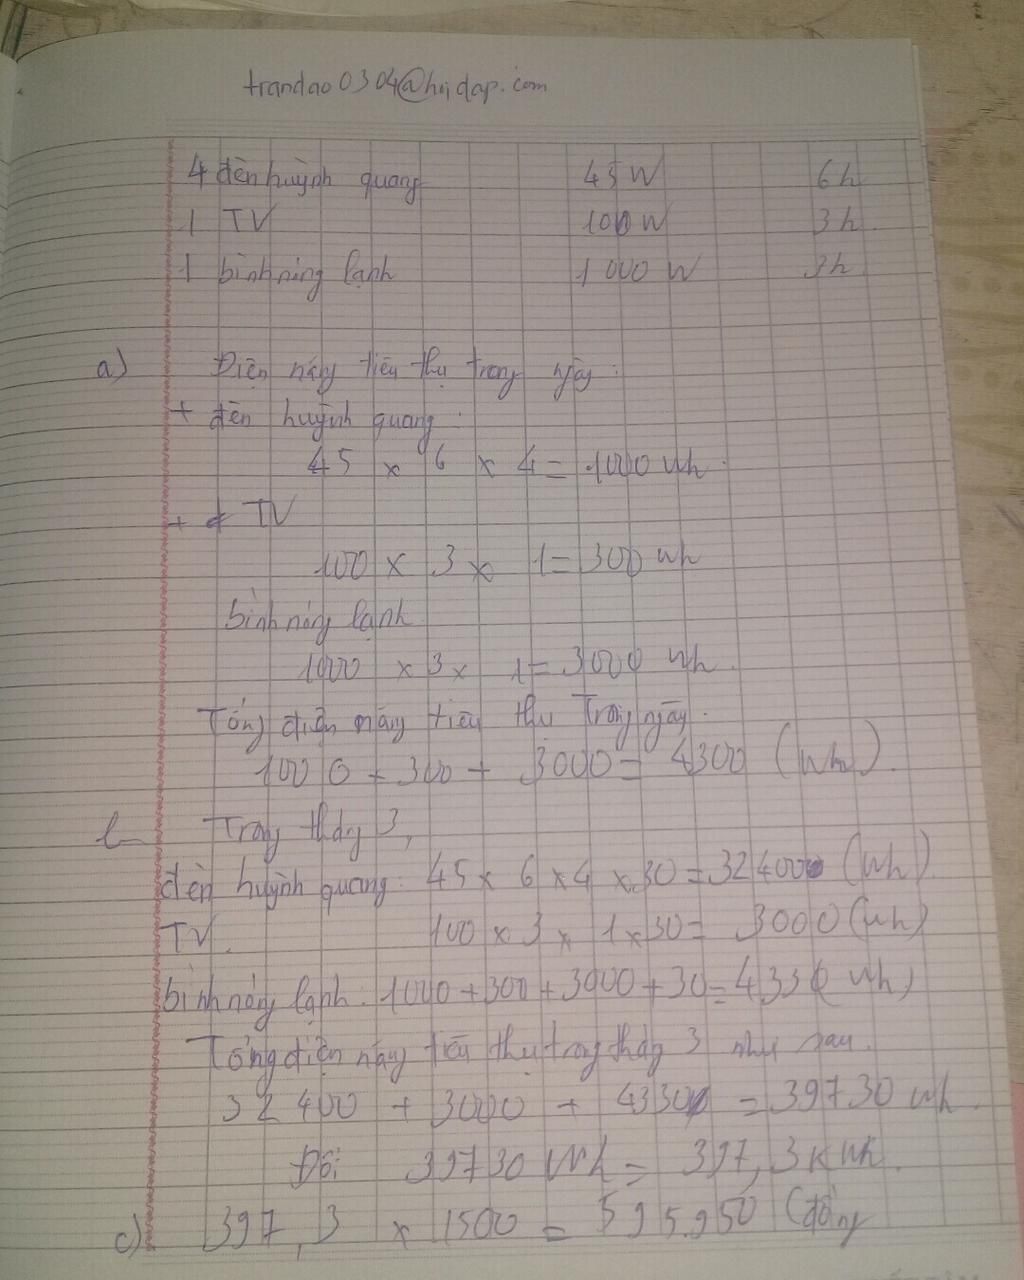 trandao0304@hỏidap.com
4 đèn huỳnh quang 45 W 6h
1 TV 100 W 3h
1 bình nóng lạnh 1 000 W 3h
a) Điện năng tiêu thụ trong ngày:
+ đèn huỳnh quang:
45 x 6 x 4 = 1000 Wh.
+ TV
100 x 3 x 1 = 300 Wh
bình nóng lạnh
1000 x 3 x 1 = 3000 Wh.
Tổng điện năng tiêu thụ trong ngày:
1000 + 300 + 3000 = 4300 (Wh).
Trong tháng 3,
đèn huỳnh quang: 45 x 6 x 4 x 30 = 32400 (Wh).
TV. 100 x 3 x 1 x 30 = 3000 (Wh)
bình nóng lạnh: 1000 + 300 + 3000 + 30 = 4330 Wh)
Tổng điện năng tiêu thụ trong tháng 3 như sau.
32 400 + 3000 + 4330 = 39730 Wh.
Đổi 39730 Wh = 397,3 KWh.
c) 397,3 x 1500 = 595.950 (đồng